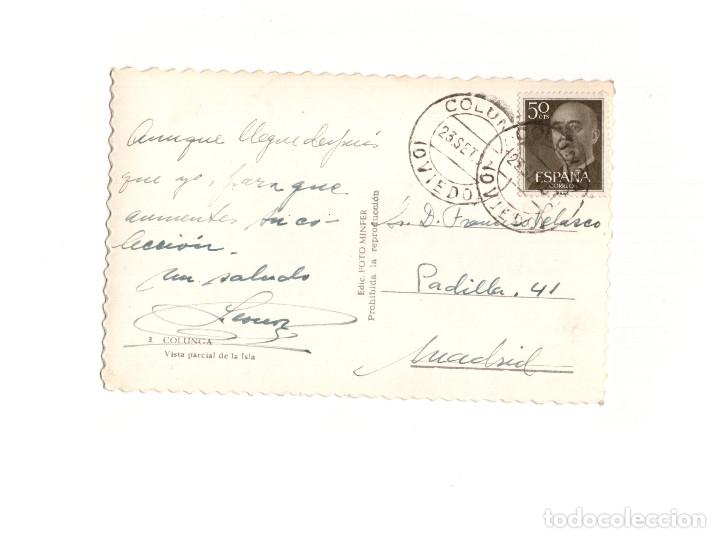 Aunque llegue después
que yo, para que
aumentes tu co-
lección.
un saludo
3 COLUNGA
Vista parcial de la Isla
Edic. FOTO MINFER
Prohibida la reproducción
COLUNGA
23 SET
(OVIEDO)
50 CTS
ESPAÑA
CORREOS
Sr. D. Francisco Velasco
Padilla, 41
Madrid
todocoleccion.net